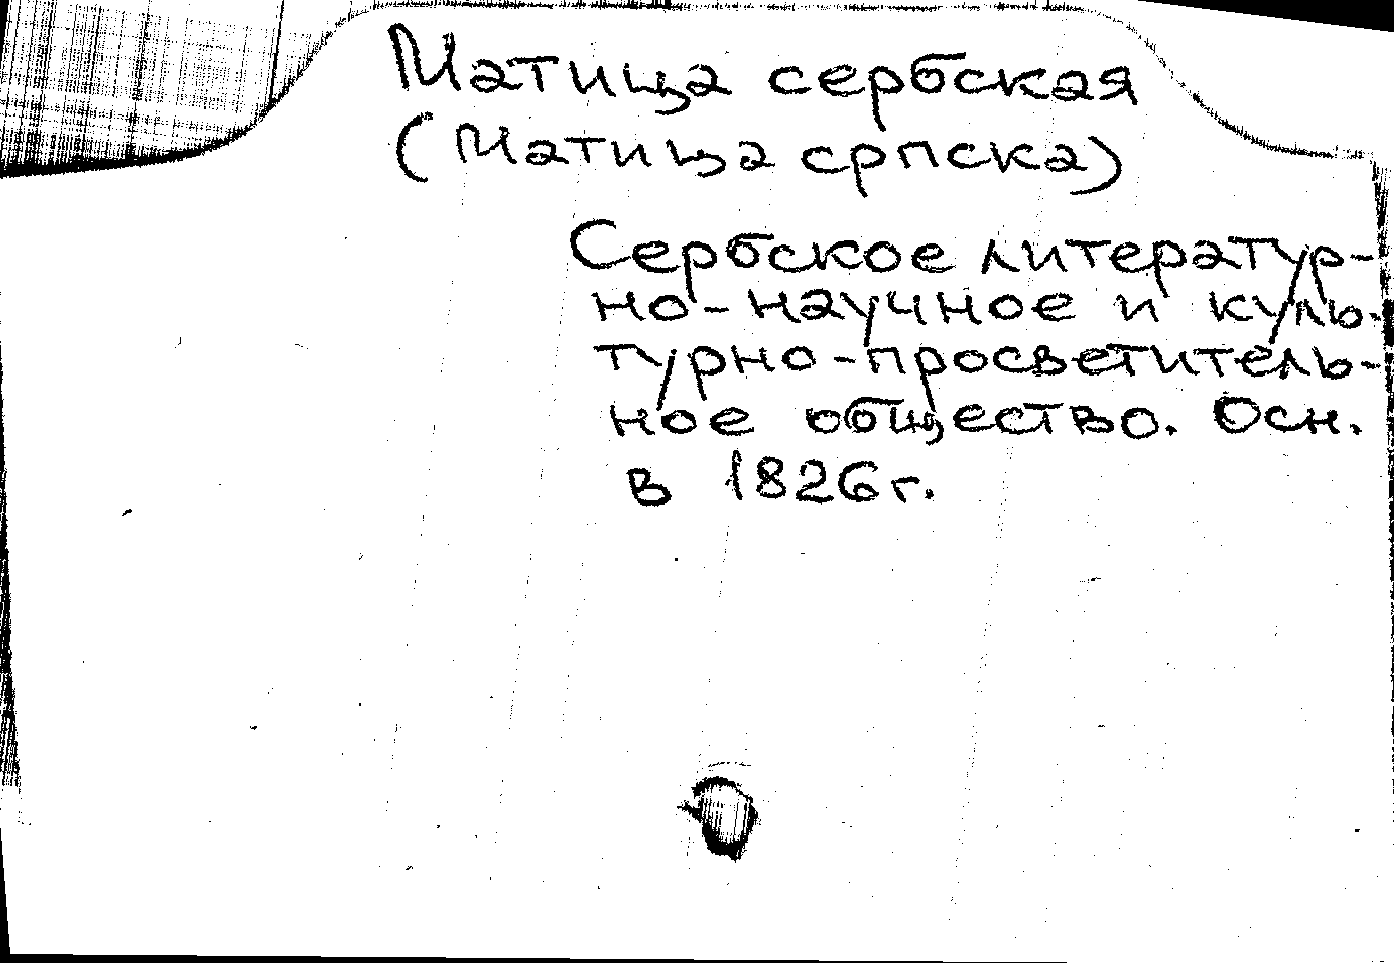 Матица сербская
(Матица српска)
Сербское литератур-
но-научное и куль-
турно-просветитель-
ное общество. Осн.
в 1826 г.